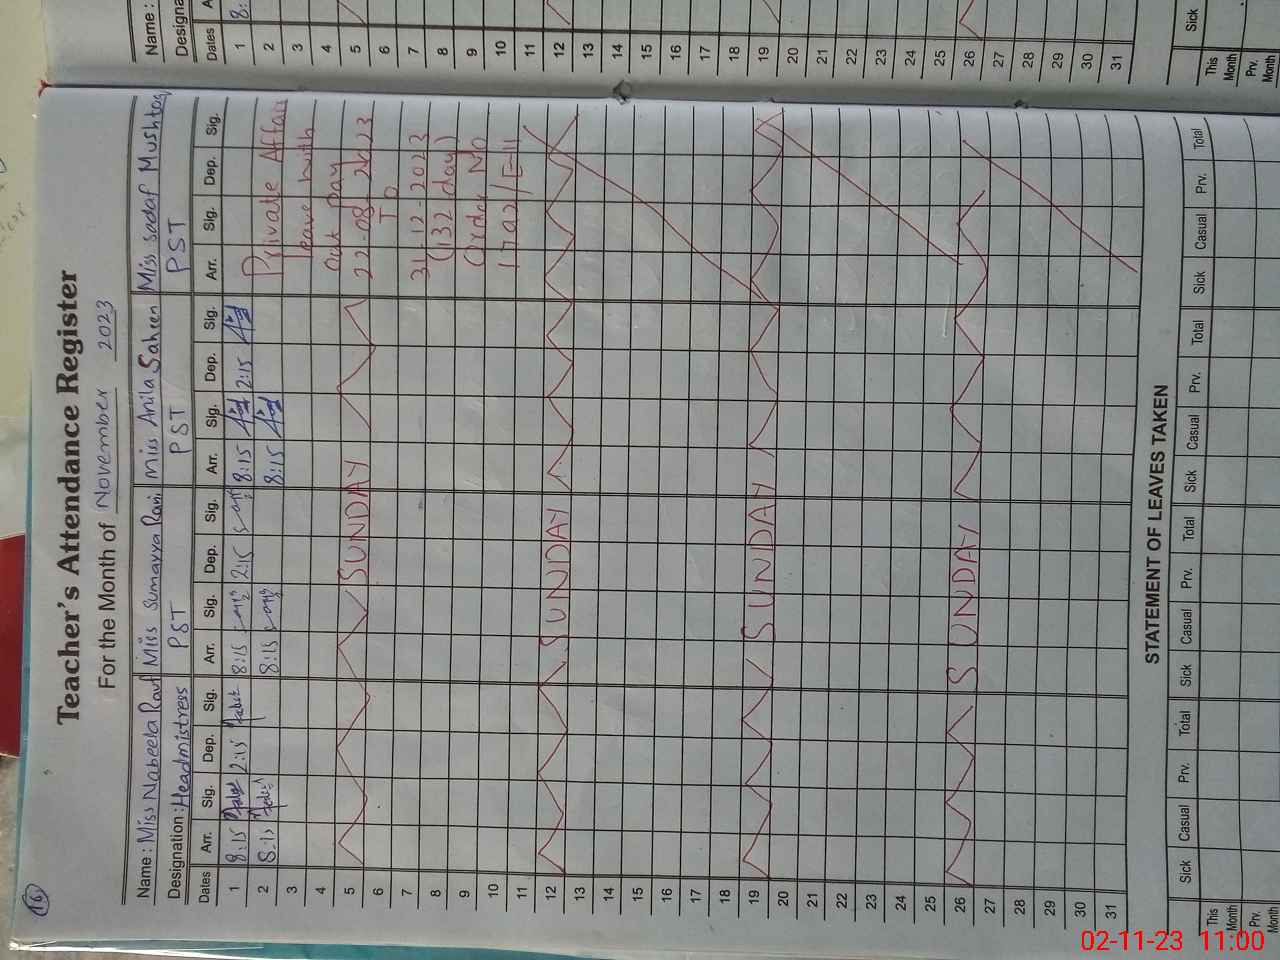 16
Teacher's Attendance Register
For the Month of November 2023
Name : Miss Nabeela Rauf Miss Sumayya Rani Miss Anila Saheen Miss Sadaf Mushtaq
Designation : Headmistress PST PST PST
Dates Arr. Sig. Dep. Sig. Arr. Sig. Dep. Sig. Arr. Sig. Dep. Sig. Arr. Sig. Dep. Sig.
1 8:15 2:15 8:15 2:15 8:15 2:15
2 8:15 8:15 8:15 Private Affair
3 leave with
4 out pay
5 SUNDAY 22-08-2023
6 To
7 31-12-2023
8 (132 day)
9 Order No
10 1792/E-11
11
12 SUNDAY
13
14
15
16
17
18
19 SUNDAY
20
21
22
23
24
25
26 SUNDAY
27
28
29
30
31
STATEMENT OF LEAVES TAKEN
Sick Casual Prv. Total Sick Casual Prv. Total Sick Casual Prv. Total Sick Casual Prv. Total
This Month
Prv. Month
Name :
Designa
Dates A
1 8:
2
3
4
5
6
7
8
9
10
11
12
13
14
15
16
17
18
19
20
21
22
23
24
25
26
27
28
29
30
31
Sick
This Month
Prv. Month
02-11-23 11:00